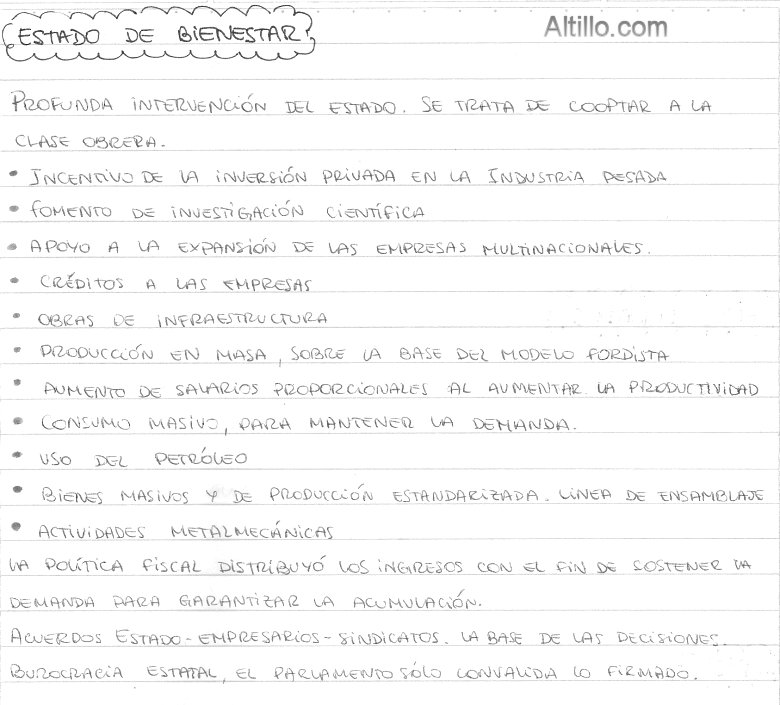 ESTADO DE BIENESTAR
Altillo.com
PROFUNDA INTERVENCIÓN DEL ESTADO. SE TRATA DE COOPTAR A LA
CLASE OBRERA.
• INCENTIVO DE LA INVERSIÓN PRIVADA EN LA INDUSTRIA PESADA
• FOMENTO DE INVESTIGACIÓN CIENTÍFICA
• APOYO A LA EXPANSIÓN DE LAS EMPRESAS MULTINACIONALES.
• CRÉDITOS A LAS EMPRESAS
• OBRAS DE INFRAESTRUCTURA
• PRODUCCIÓN EN MASA, SOBRE LA BASE DEL MODELO FORDISTA
• AUMENTO DE SALARIOS PROPORCIONALES AL AUMENTAR LA PRODUCTIVIDAD
• CONSUMO MASIVO, PARA MANTENER LA DEMANDA.
• USO DEL PETRÓLEO
• BIENES MASIVOS Y DE PRODUCCIÓN ESTANDARIZADA. LÍNEA DE ENSAMBLAJE
• ACTIVIDADES METALMECÁNICAS
LA POLÍTICA FISCAL DISTRIBUYÓ LOS INGRESOS CON EL FIN DE SOSTENER LA
DEMANDA PARA GARANTIZAR LA ACUMULACIÓN.
ACUERDOS ESTADO-EMPRESARIOS-SINDICATOS. LA BASE DE LAS DECISIONES.
BUROCRACIA ESTATAL, EL PARLAMENTO SÓLO CONVALIDA LO FIRMADO.